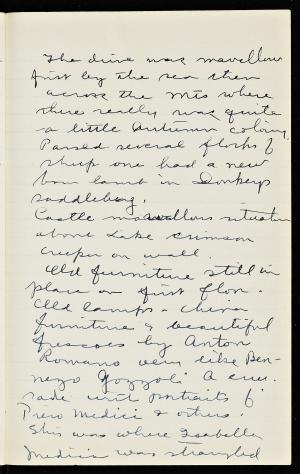 The drive was mavellous
first by the sea then
across the mts where
there really was quite
a little Autumn coloring.
Passed several flocks of
sheep one had a new
born lamb in Donkeys
saddlebag.
Castle marvellous situation
above Lake crimson
creeper on wall
Old furniture still in
place on first floor.
Old lamps - china
furniture & beautiful
frescoes by Anton
Romano very like Ben-
nezo Gozzoli A cru-
sade with portraits of
Piero Medici & others.
This was where Isabella
Medicis was strangled